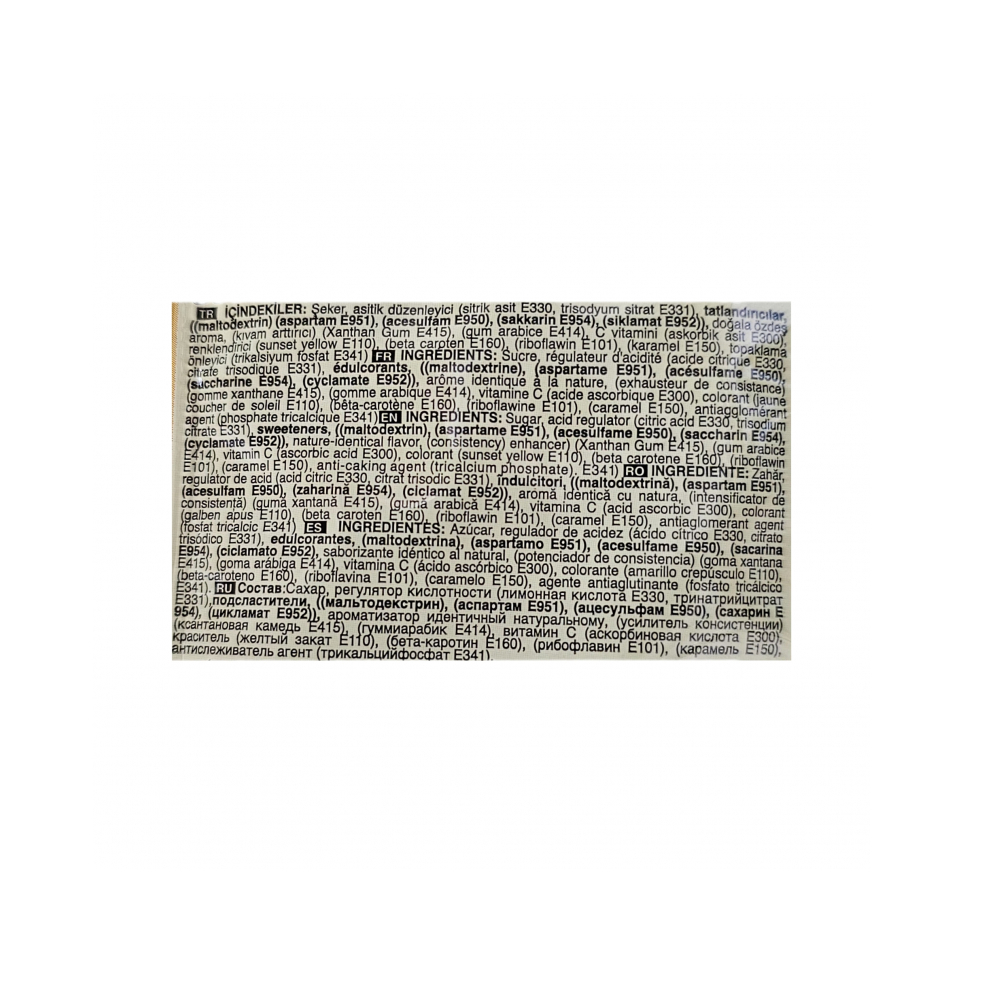 TR İÇİNDEKİLER: Şeker, asitlik düzenleyici (sitrik asit E330, trisodyum sitrat E331), tatlandırıcılar,
((maltodextrin) (aspartam E951), (acesulfam E950), (sakkarin E954), (siklamat E952)), doğala özdeş
aroma, (kıvam arttırıcı) (Xanthan Gum E415), (gum arabice E414), C vitamini (askorbik asit E300),
renklendirici (sunset yellow E110), (beta caroten E160), (riboflawin E101), (karamel E150), topaklama
önleyici (trikalsiyum fosfat E341) FR INGRÉDIENTS: Sucre, régulateur d'acidité (acide citrique E330,
citrate trisodique E331), édulcorants, ((maltodextrine), (aspartame E951), (acésulfame E950),
(saccharine E954), (cyclamate E952)), arôme identique à la nature, (exhausteur de consistance)
(gomme xanthane E415), (gomme arabique E414), vitamine C (acide ascorbique E300), colorant (jaune
coucher de soleil E110), (bêta-carotène E160), (riboflavine E101), (caramel E150), antiagglomérant
agent (phosphate tricalcique E341) EN INGREDIENTS: Sugar, acid regulator (citric acid E330, trisodium
citrate E331), sweeteners, ((maltodextrin) (aspartame E951), (acesulfame E950), (saccharin E954),
(cyclamate E952)), nature-identical flavor, (consistency) enhancer) (Xanthan Gum E415), (gum arabice
E414), vitamin C (ascorbic acid E300), colorant (sunset yellow E110), (beta carotene E160), (riboflawin
E101), (caramel E150), anti-caking agent (tricalcium phosphate). E341) RO INGREDIENTE: Zahăr,
regulator de acid (acid citric E330, citrat trisodic E331), îndulcitori, ((maltodextrină), (aspartam E951),
(acesulfam E950), (zaharină E954), (ciclamat E952)), aromă identică cu natura, (intensificator de
consistență) (gumă xantană E415), (gumă arabică E414), vitamina C (acid ascorbic E300), colorant
(galben apus E110), (beta caroten E160), (riboflawin E101), (caramel E150), antiaglomerant agent
(fosfat tricalcic E341) ES INGREDIENTES: Azúcar, regulador de acidez (ácido cítrico E330, citrato
trisódico E331), edulcorantes, (maltodextrina), (aspartamo E951), (acesulfame E950), (sacarina
E954), (ciclamato E952), saborizante idéntico al natural, (potenciador de consistencia) (goma xantana
E415), (goma arábiga E414), vitamina C (ácido ascórbico E300), colorante (amarillo crepúsculo E110),
(beta-caroteno E160), (riboflavina E101), (caramelo E150), agente antiaglutinante (fosfato tricálcico
E341). RU Состав:Сахар, регулятор кислотности (лимонная кислота E330, тринатрийцитрат
E331),подсластители, ((мальтодекстрин), (аспартам E951), (ацесульфам E950), (сахарин E
954), (цикламат E952)), ароматизатор идентичный натуральному, (усилитель консистенции)
(ксантановая камедь E415), (гуммиарабик E414), витамин С (аскорбиновая кислота E300),
краситель (желтый закат E110), (бета-каротин E160), (рибофлавин E101), (карамель E150),
антислеживатель агент (трикальцийфосфат E341).